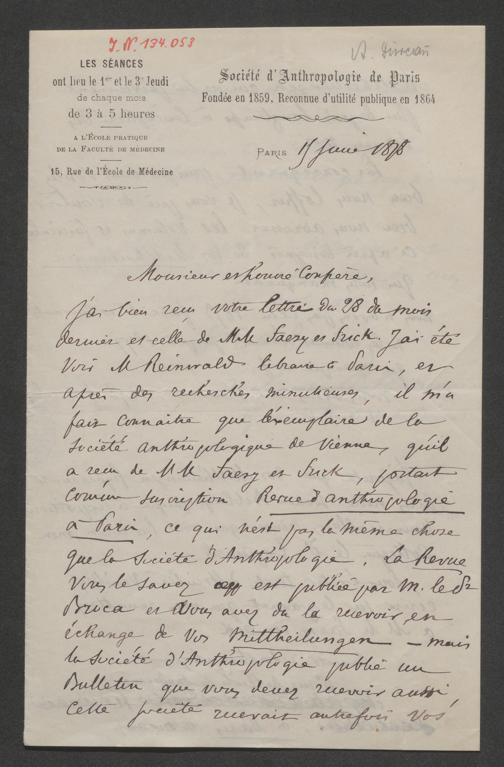 J.N. 134.053
LES SÉANCES
ont lieu le 1er et le 3e Jeudi
de chaque mois
de 3 à 5 heures
A L'ÉCOLE PRATIQUE
DE LA FACULTÉ DE MÉDECINE
15, Rue de l'École de Médecine
A.
Société d'Anthropologie de Paris
Fondée en 1859, Reconnue d'utilité publique en 1864
PARIS Juin 1878
Monsieur et honoré Confrère,
J'ai bien reçu votre lettre du 28 du mois
dernier et celle de MM Faesy et Frick. J'ai été
voir M Reinwald libraire à Paris, et
après des recherches minutieuses, il m'a
fait connaitre que l'exemplaire de la
Société anthropologique de Vienne, qu'il
a reçu de MM Faesy et Frick, portait
comme suscription Revue d'anthropologie
à Paris, ce qui n'est pas la même chose
que la Société d'Anthropologie. La Revue
vous le savez est publiée par M. le Dr
Broca et vous avez du la recevoir en
échange de vos Mittheilungen – mais
la Société d'Anthropologie publie un
Bulletin que vous devez recevoir aussi
Cette Société recevait autrefois vos